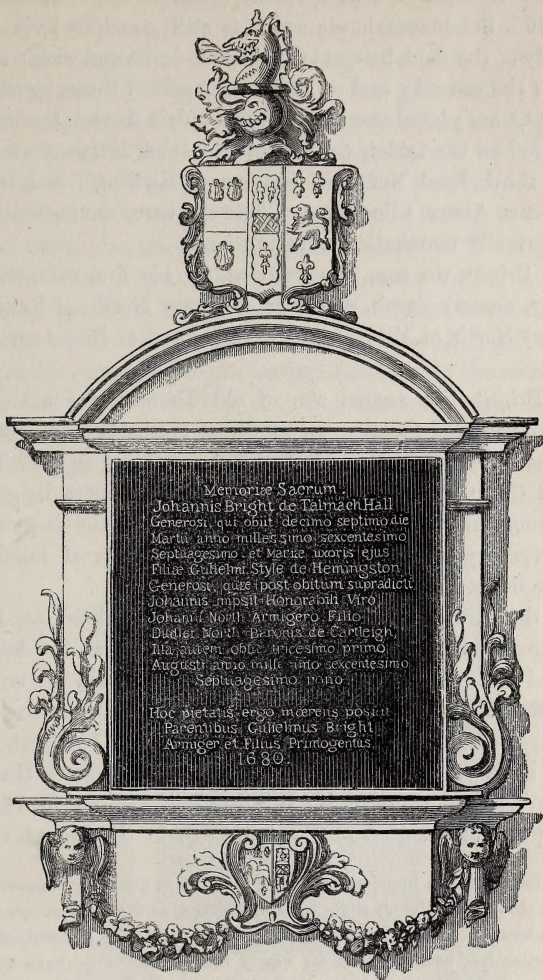 Memoriæ Sacrum.
Johannis Bright de Talmach Hall
Generosi, qui obiit decimo septimo die
Martii anno millessimo sexcentesimo
Septuagesimo et Mariæ uxoris ejus
Filiæ Gulielmi Style de Hemingston
Generosi, quæ post obitum supradicti
Johannis nupsit Honorabili Viro
Johanni North Armigero Filio
Dudlei North Baronis de Cartleigh,
Illa autem obiit tricesimo primo
Augusti anno mille imo sexcentesimo
Septuagesimo nono
Hoc pietatis ergo mœrens posuit
Parentibus Gulielmus Bright
Armiger et Filius Primogenitus
1680.